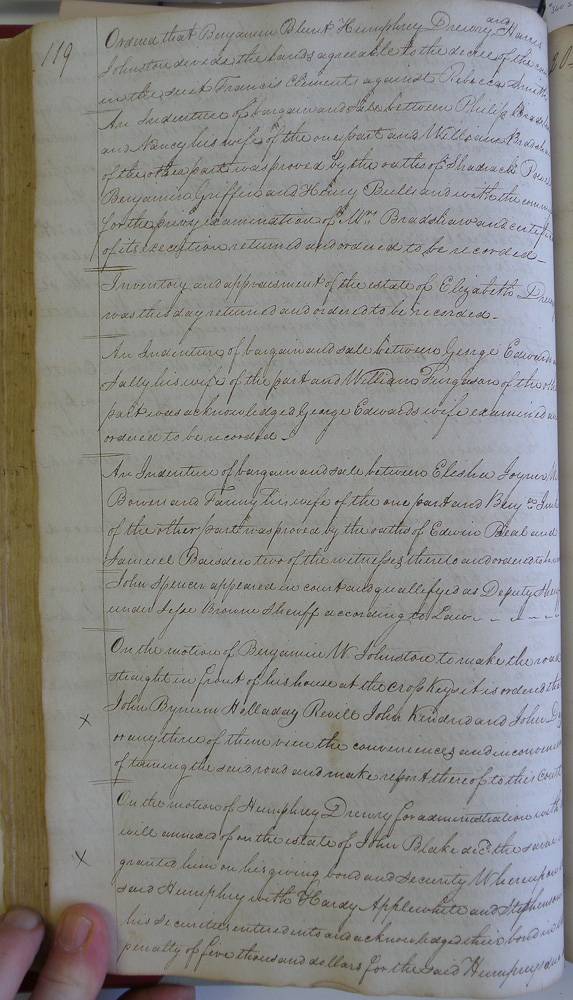 119
Ordered that Benjamin Blunt Humphrey Drewry and Harris
Johnston devide the lands agreeable to the decree of the
in the suit Francis Clements against Rebecca Smith
An Indenture of bargain and sale between Philip Bradshaw
and Nancy his wife of the one part and William Bradshaw
of the other part was proved by the oaths of Shadrack
Benjamin Griffin and Henry Bulls and with the
for the privy examination of Mrs Bradshaw and
of its execution returned and ordered to be recorded
Inventory and appraisment of the estate of Elizabeth Drewry
was this day returned and ordered to be recorded
An Indenture of bargain and sale between George Edwards
Sally his wife of the part and William Furgason of the
part was acknowledged George Edwards wife examined
ordered to be recorded
An Indenture of bargain and sale between Elisha Joyner
Bowen and Fanny his wife of the one part and Benj
of the other part was proved by the oaths of Edwin Beal and
Samuel Baisden two of the witnesses thereto and ordered
John Spencer appeared in court and quallefyed as Deputy
under Jesse Browne Sheriff according to Law
On the motion of Benjamin W. Johnston to make the road
straight in front of his house at the cross Keys it is ordered that
X John Bynum Holladay Revill John Kindred and John
or any three of them view the conveniences and
of turning the said road and make report thereof to this Court
On the motion of Humphrey Drewry for administration with
will annexed of on the estate of John Blake decd the same
X granted him on his giving bond and security Whereupon
said Humphry with Hardy Applewhite and
his securities entered into and acknowledged their bond in
penalty of five thousand dollars for the said Humphrys